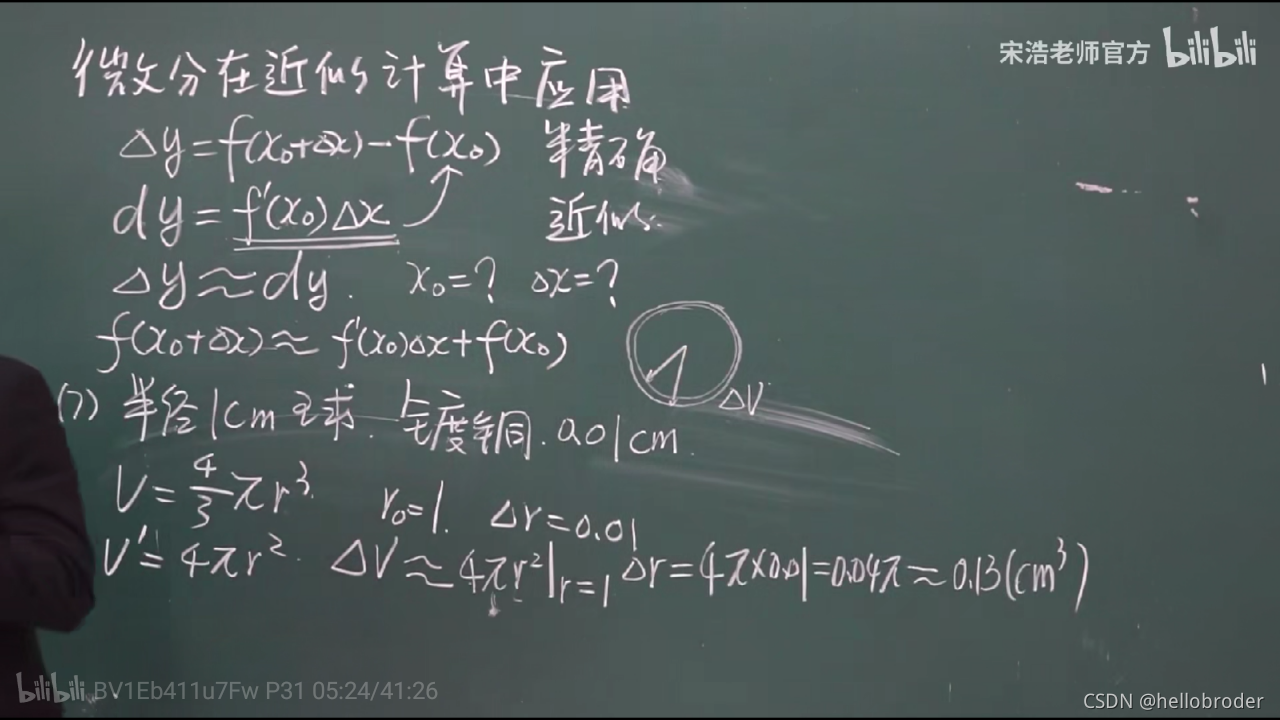 宋浩老师官方 bilibili
微分在近似计算中应用
Δy=f(x₀+Δx)-f(x₀) 精确
dy=f'(x₀)Δx 近似
Δy≈dy. x₀=? Δx=?
f(x₀+Δx)≈f'(x₀)Δx+f(x₀)
ΔV
半径1cm 球. 镀铜. 0.01cm.
V=4/3πr³. r₀=1. Δr=0.01
V'=4πr². ΔV≈4πr²|r=1 Δr=4π×0.01=0.04π≈0.13(cm³)
bilibili BV1Eb411u7Fw P31 05:24/41:26
CSDN @hellobroder